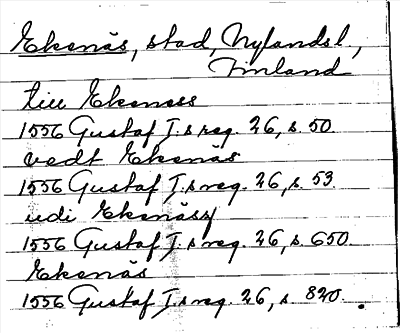 Ekenäs, stad, Nylandsl.,
Finland
till Ekeness
1556 Gustaf I:s reg. 26, s. 50.
vedt Ekenäs
1556 Gustaf I:s reg. 26, s. 53.
udi Ekenäsz
1556 Gustaf I:s reg. 26, s. 650.
Ekenäs
1556 Gustaf I:s reg. 26, s. 820.